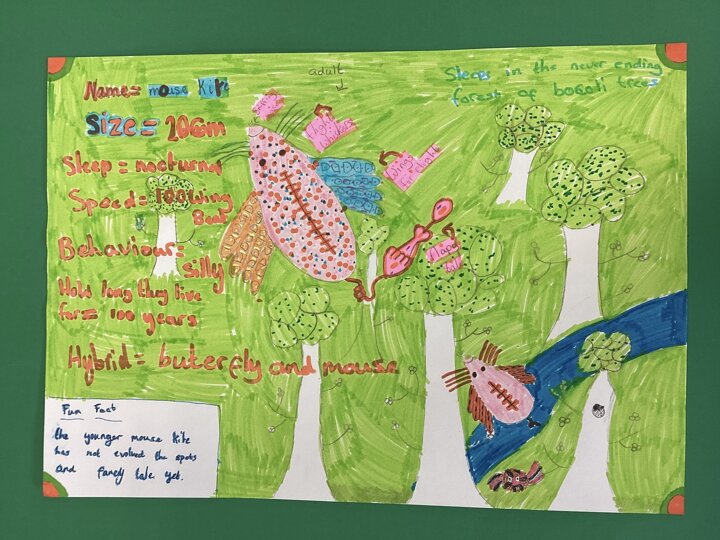 Name= mouse Kite
Size= 20cm
Sleep = nocturnal
Speed= 100 wing
Beat
Behaviour=
silly
Hold long they live
for= 100 years
Hybrid= buterfly and mouse
adult
Sleeps in the never ending
forest of booali trees
Wings
Fun Fact
the younger mouse kite
has not evolved the spots
and fancy tale yet.